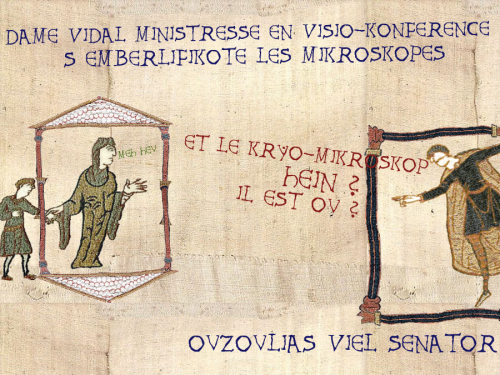 DAME VIDAL MINISTRESSE EN VISIO-KONFERENCE
S EMBERLIFIKOTE LES MIKROSKOPES
MEH HEU
ET LE KRYO-MIKROSKOP
HEIN ?
IL EST OV ?
OVZOVLIAS VIEL SENATOR